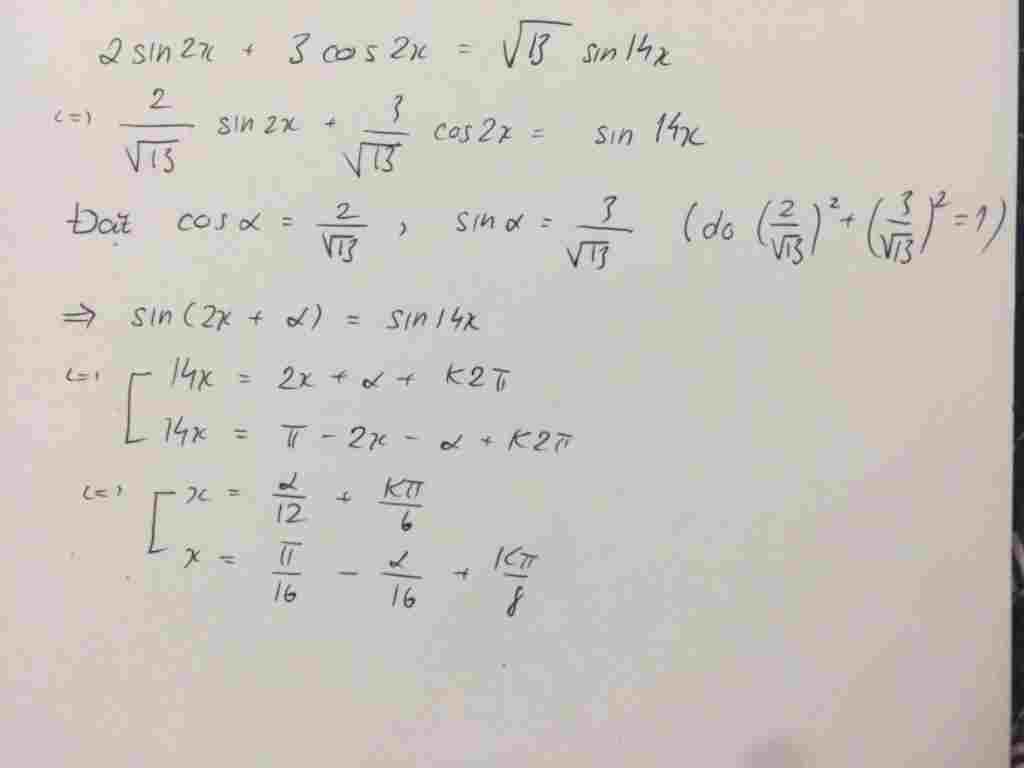 2 sin 2x + 3 cos 2x = √13 sin 14x
<=> 2/√13 sin 2x + 3/√13 cos 2x = sin 14x
Đặt cos α = 2/√13 , sin α = 3/√13 (do (2/√13)² + (3/√13)² = 1)
=> sin(2x + α) = sin 14x
<=> [ 14x = 2x + α + K2π
14x = π - 2x - α + K2π
<=> [ x = α/12 + Kπ/6
x = π/16 - α/16 + Kπ/8